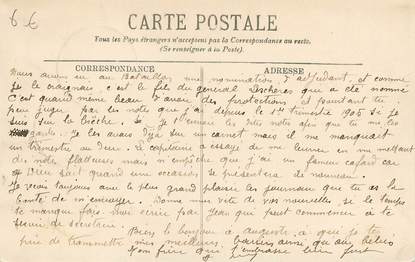 6 €
CARTE POSTALE
Tous les Pays étrangers n'acceptent pas la Correspondance au recto.
(Se renseigner à la Poste).
CORRESPONDANCE ADRESSE
Nous avons eu au Bataillon une nomination d'adjudant, et comme
je le craignais, c'est le fils du général qui a été nommé
C'est quand même beau d'avoir des protections, et pourtant tu
peux juger par les notes que j'ai depuis le 1er trimestre 1905 si je
suis sur la brèche. Je te les notes afin que tu me les
gardes. Je les avais déjà sur un carnet mais il me manquait
un trimestre ou deux. Le capitaine a essayé de me en me mettant
de notes flatteuses mais n'empêche que j'ai un fameux cafard car
Dieu sait quand une occasion se présentera de nouveau.
Je reçois toujours avec le plus grand plaisir les journaux que tu as la
bonté de m'envoyer. Donne moi vite de vos nouvelles, si le temps
te manque fais moi écrire par Jean qui peut commencer à te
servir de secrétaire.
Bien le bonjour à auguste à qui je te
prie de transmettre mes meilleurs baisers ainsi qu'aux bébés
Ton frère qui t'embrasse bien fort